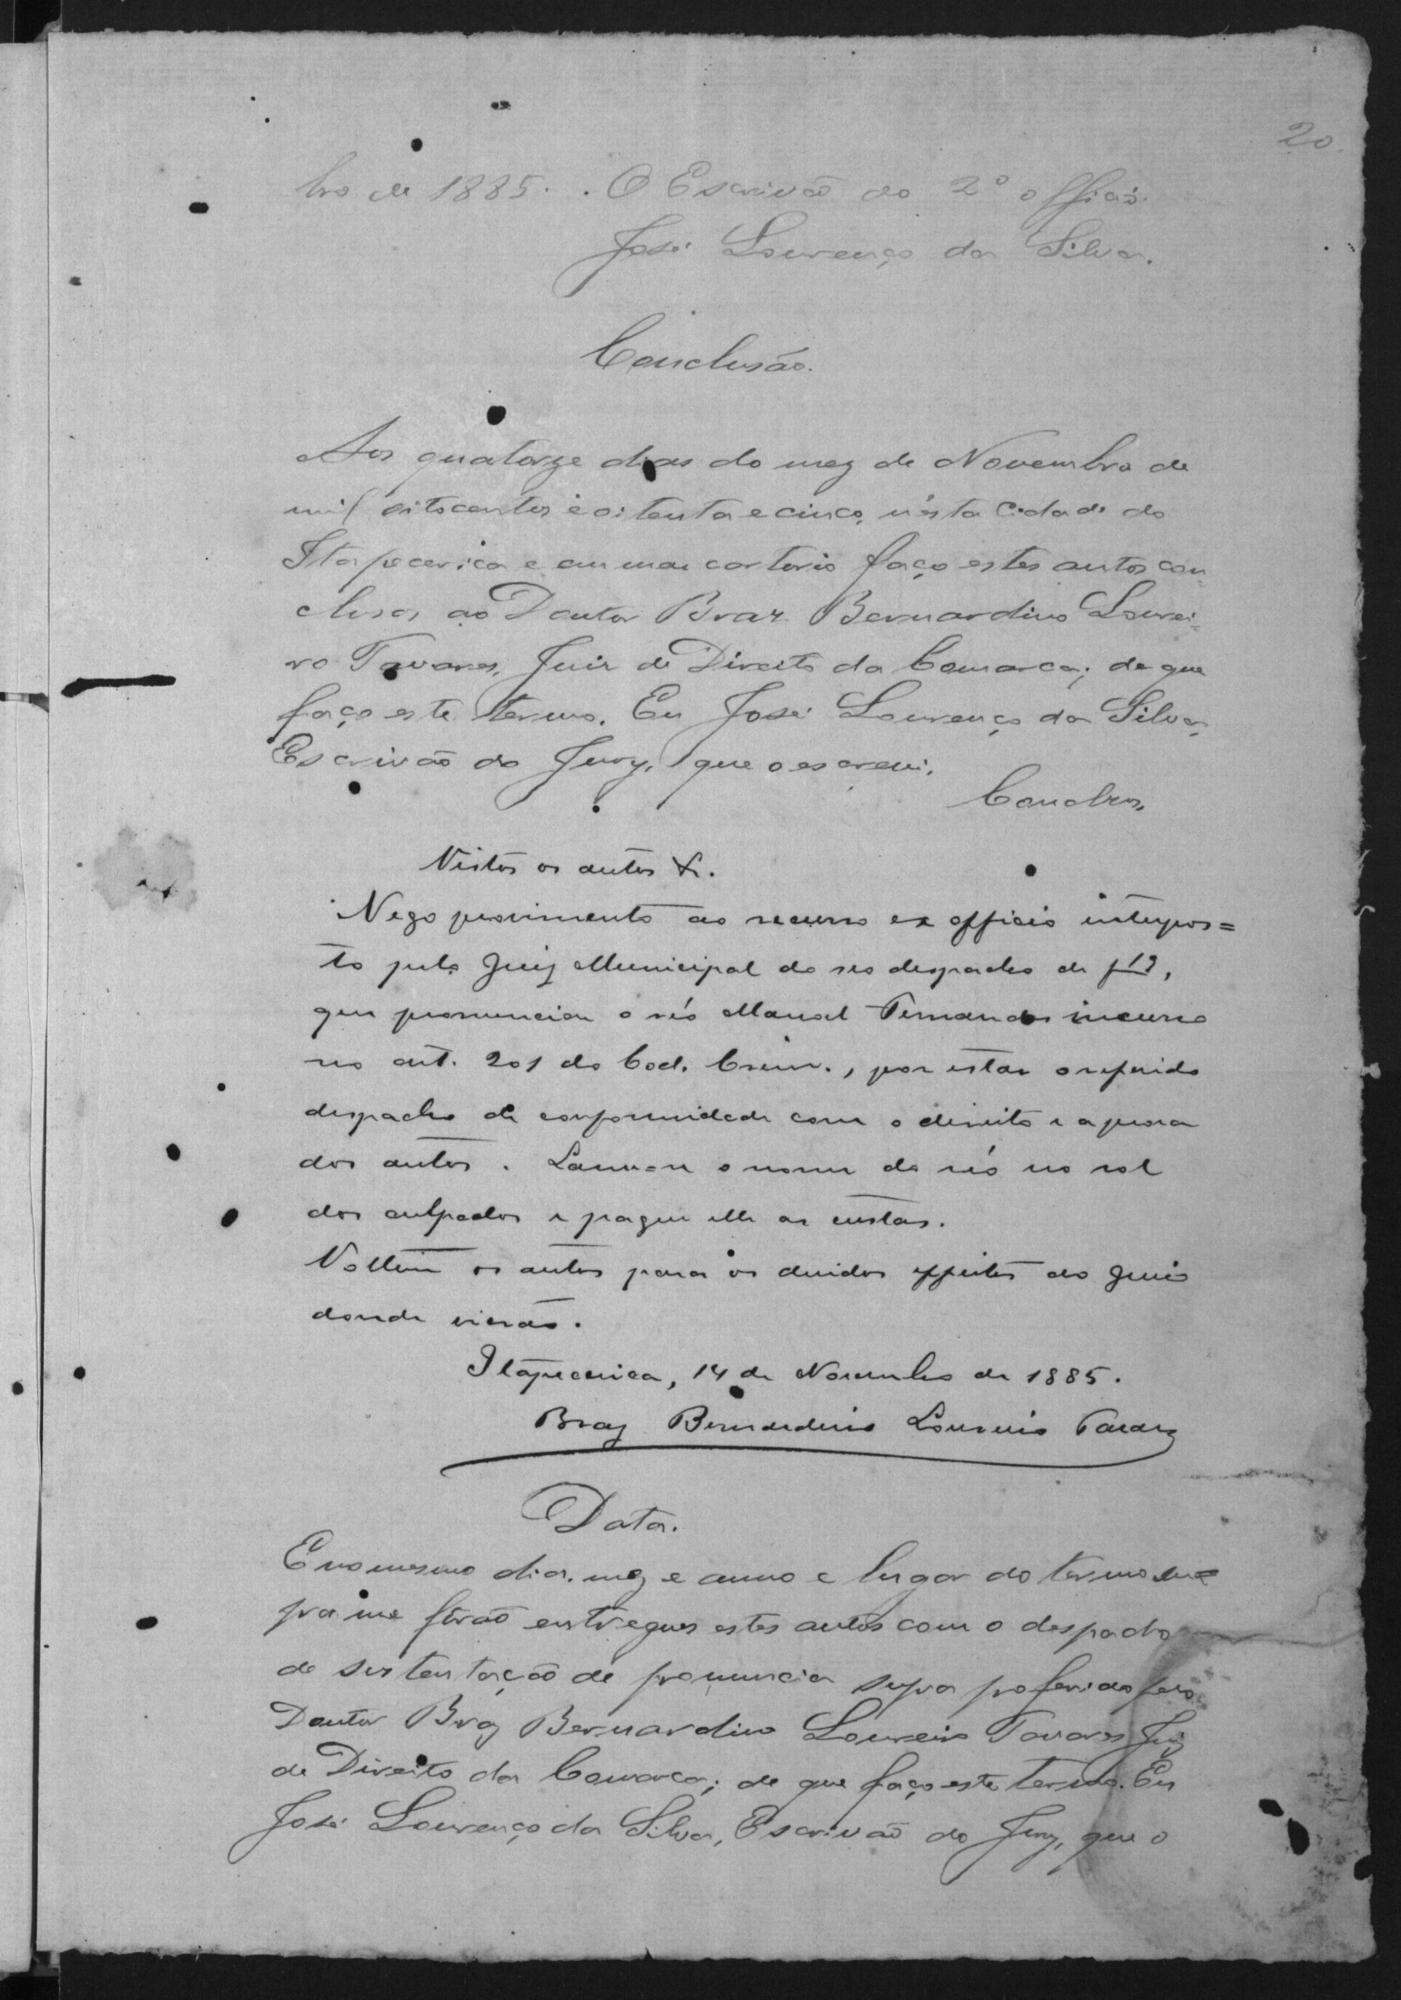 20.
bro de 1885. O Escrivão do 2º officio
José Lourenço da Silva.
Conclusão.
Aos quatorze dias do mez de Novembro de
mil oitocentos e oitenta e cinco, n'esta Cidade do
Itapecerica e em meu cartorio faço estes autos con-
clusos ao Doutor Braz Bernardino Lourei-
ro Tavares, Juiz de Direito da Comarca; de que
faço este termo. Eu José Lourenço da Silva,
Escrivão do Jury, que o escrevi.
Conclsos,
Vistos os autos &.
Nego provimento ao recurso ex officio interpos=
to pelo Juiz Municipal do seo despacho de f
que pronunciou o réo Manoel Fernandes incurso
no art. 201 do Cod. Crim., por estar o referido
despacho de conformidade com o direito e a prova
dos autos. Lancem o nome do réo no rol
dos culpados e pague elle as custas.
Voltem os autos para os devidos effeitos ao Juiso
donde vierão.
Itapecerica, 14 de Novembro de 1885.
Braz Bernardino Loureiro Tavares
Data.
E no mesmo dia, mez e anno e lugar do termo su=
pra me forão entregues estes autos com o despacho
de sustentação de pronuncia supra proferido pelo
Doutor Braz Bernardino Loureiro Tavares Juiz
de Direito da Comarca; de que faço este termo. Eu
José Lourenço da Silva, Escrivão do Jury, que o